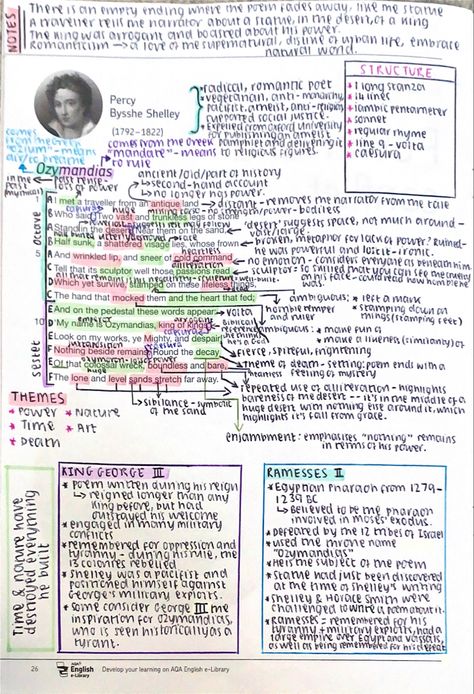 NOTES
There is an empty ending where the poem fades away, like the statue
A traveller tells the narrator about a statue, in the desert, of a king
The king was arrogant and boasted about his power.
Romanticism → a love of the supernatural, dislike of urban life, embrace
natural world.
Percy
Bysshe Shelley
(1792–1822)
* radical, romantic poet
* vegetarian, anti-monarchy,
pacifist, atheist, anti-religion
supported social justice.
* Expelled from Oxford university
for publishing an atheist
pamphlet and delivering it
to religious figures.
STRUCTURE
* 1 long stanza
* 14 lines
* iambic pentameter
* sonnet
* regular rhyme
* line 9 - volta
* caesura
comes from the Greek
"mandate" - means
to rule
"ozium" - means
air/to breathe
Ozymandias
in the past
loss of power
ancient/old/part of history
→ second-hand account
→ no longer has power.
Octave
Sestet
1 A I met a traveller from an antique land
B Who said: Two vast and trunkless legs of stone
A Stand in the desert. Near them on the sand,
B Half sunk, a shattered visage lies, whose frown
5 A And wrinkled lip, and sneer of cold command
C Tell that its sculptor well those passions read
D Which yet survive, stamped on these lifeless things,
C The hand that mocked them and the heart that fed;
E And on the pedestal these words appear:
10 D 'My name is Ozymandias, king of kings:
E Look on my works, ye Mighty, and despair!'
F Nothing beside remains. Round the decay
E Of that colossal wreck, boundless and bare,
F The lone and level sands stretch far away.
→ distant - removes the narrator from the tale
"desert" suggests space, not much around -
vast/large.
broken, metaphor for lack of power? ruined -
he was powerful and lost it - ironic.
heartless
no emotion - considers everyone as beneath him
alliteration
→ volta
ambiguous:
* left a mark
* stamping down on
things (stamping feet)
horrible temper
and ruler
ambiguous: * make fun of
* make a likeness (similarity) of
→ fierce, spiteful, frightening
→ theme of death - setting; poem ends with a
feeling of mystery
→ repeated use of alliteration - highlights
bareness of the desert -- it's in the middle of a
huge desert with nothing else around it, which
highlights its fall from grace.
→ sibilance - symbolic
of the sand
enjambment: emphasises "nothing" remains
in terms of his power.
THEMES
* Power * Nature
* Time * Art
* Death
Time & nature have
destroyed everything
he built
KING GEORGE III
* Poem written during his reign
↳ reigned longer than any
king before, but had
outstayed his welcome
* engaged in many military
conflicts
* remembered for oppression and
tyranny - during his rule, the
13 colonies rebelled
* Shelley was a pacifist and
positioned himself against
George's military exploits.
* Some consider George III the
inspiration for Ozymandias,
who is seen historically as a
tyrant.
RAMESSES II
* Egyptian pharaoh from 1279-
1239 BC
↳ believed to be the pharaoh
involved in Moses' exodus.
* Defeated by the 12 tribes of Israel
* used the throne name
"Ozymandias"
* He is the subject of the poem
* Statue had just been discovered
at the time of Shelley's writing
* Shelley & Horace Smith were
challenged to write a poem about it.
* Ramesses - remembered for his
tyranny + military exploits, had a
large empire over Egypt and vassals,
as well as being remembered for his defeat
26
AQA English e-Library
Develop your learning on AQA English e-Library